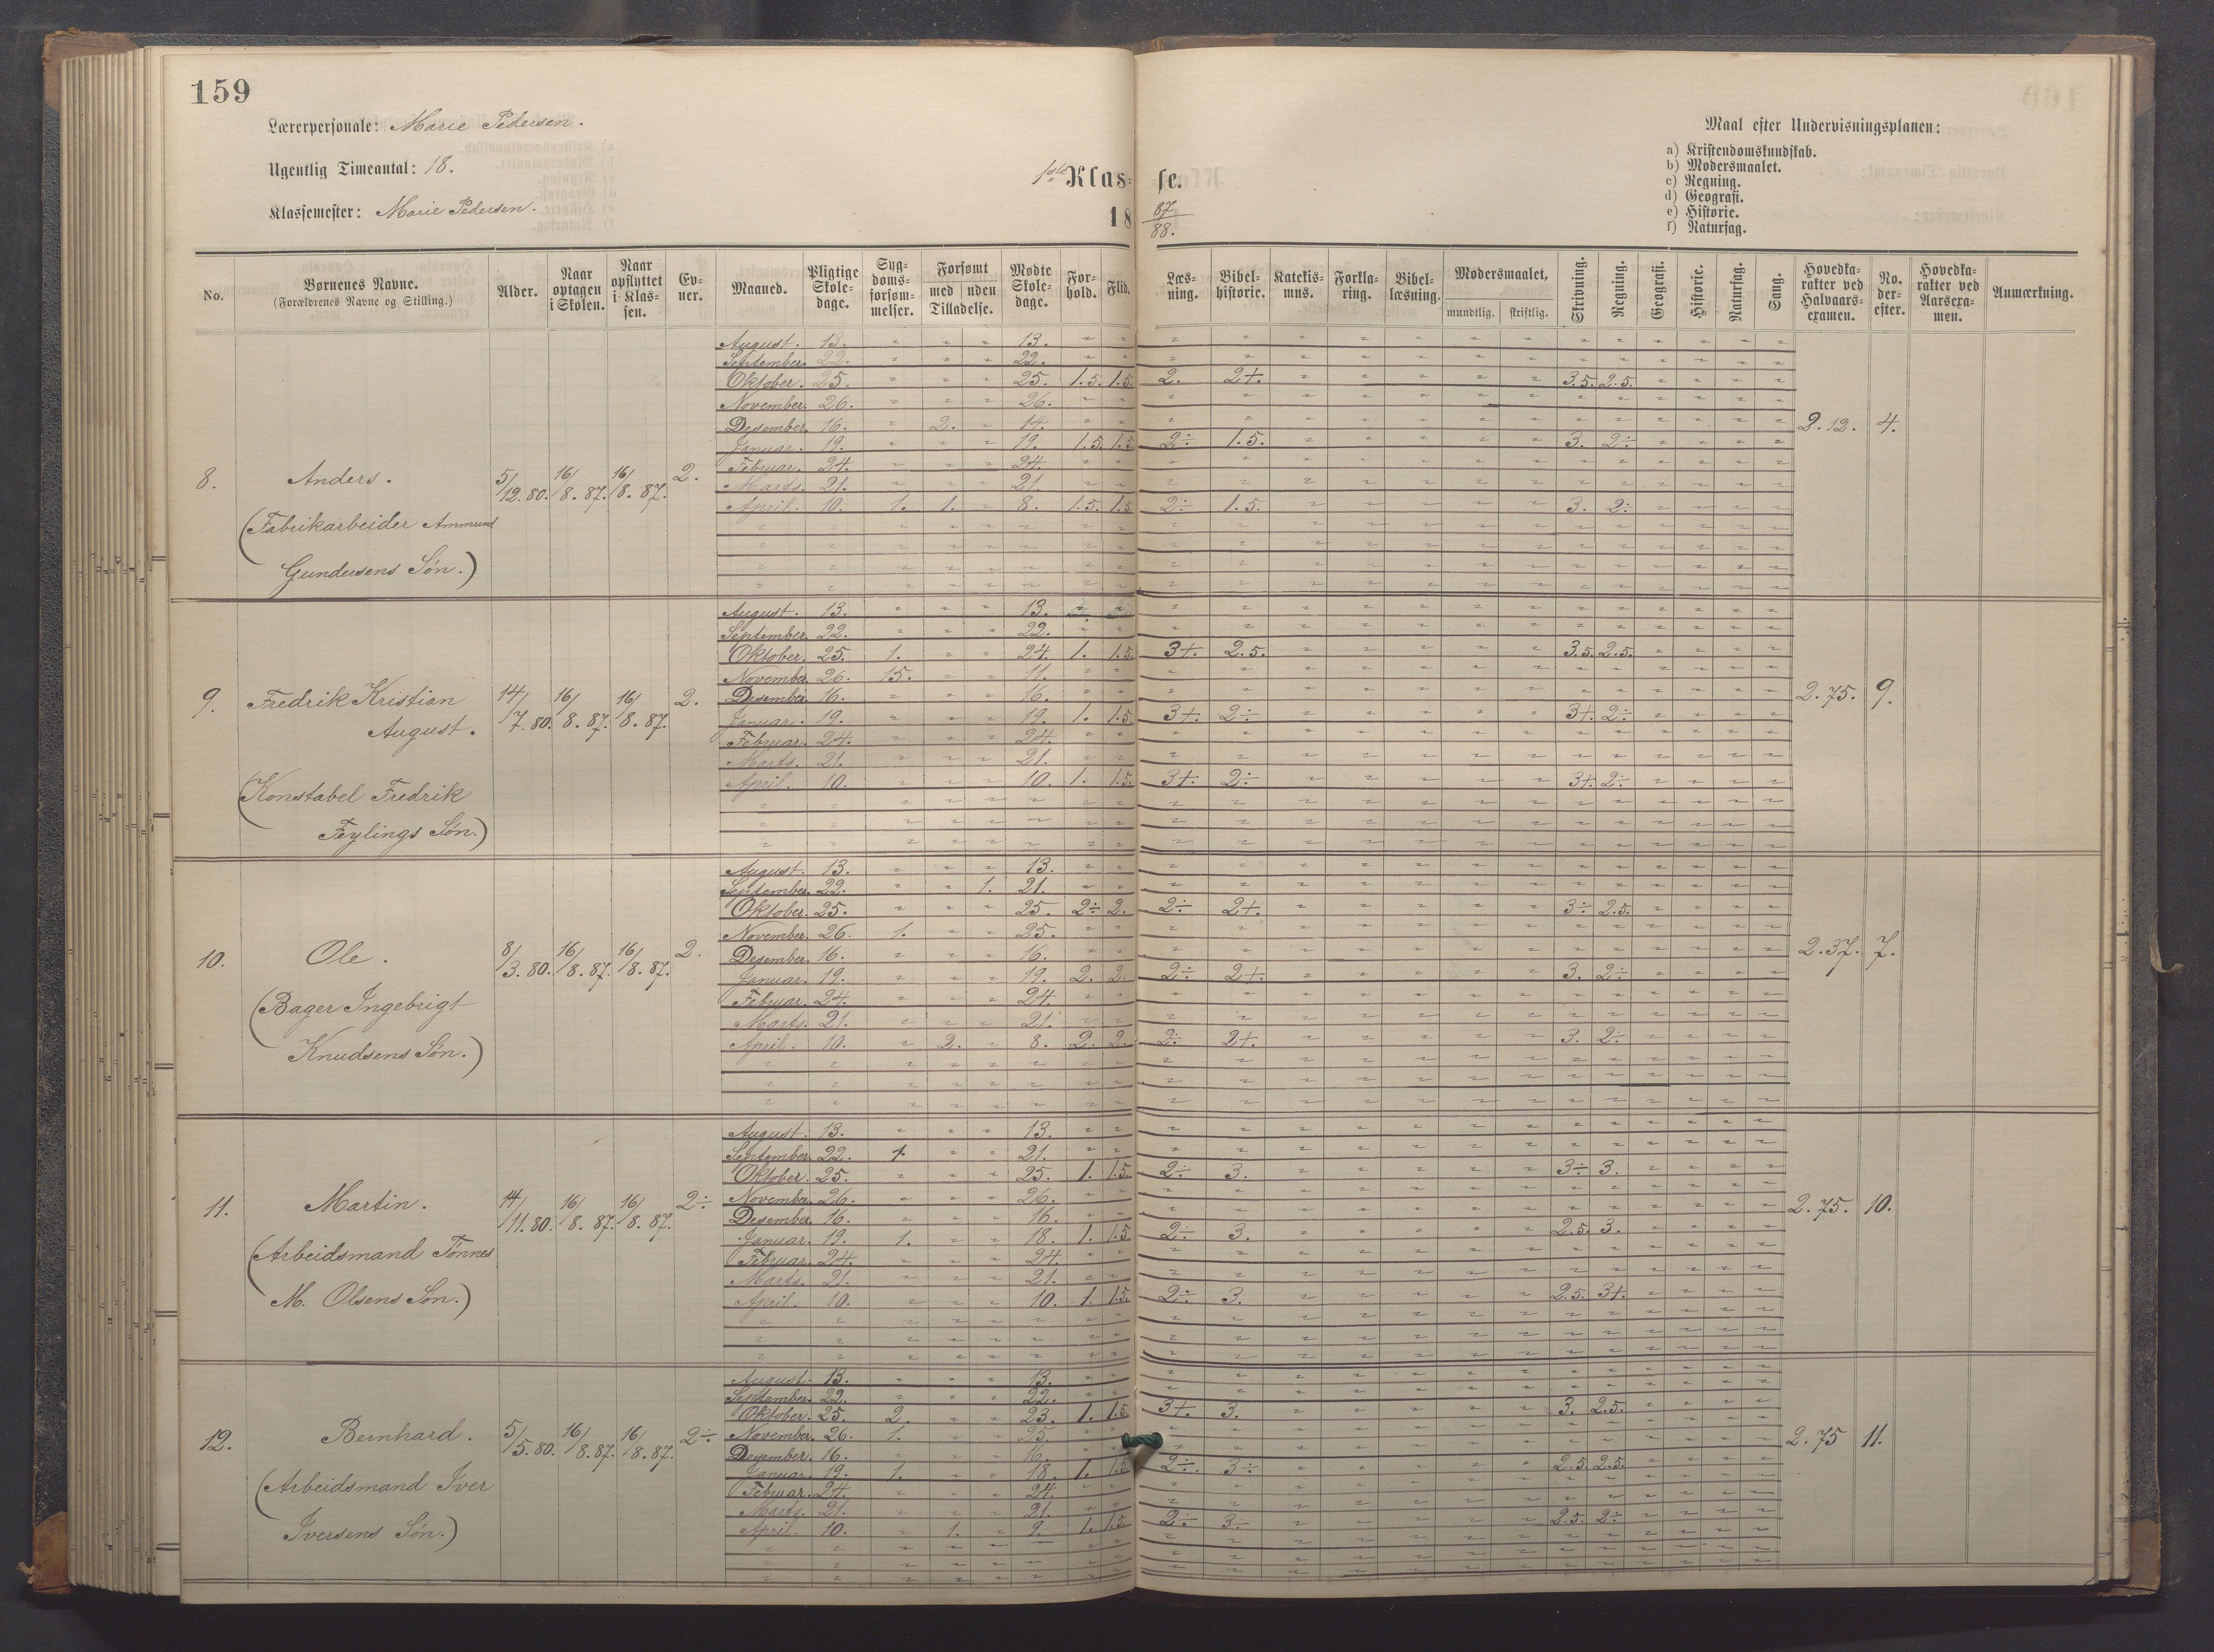 159
Lærerpersonale: Marie Pedersen.
Ugentlig Timeantal: 18.
Klassemester: Marie Pedersen.
1ste Klasse.
18 87/88.
Maal efter Undervisningsplanen:
a) Kristendomskundskab.
b) Modersmaalet.
c) Regning.
d) Geografi.
e) Historie.
f) Naturfag.
No. | Børnenes Navne. (Forældrenes Navne og Stilling.) | Alder. | Naar optagen i Skolen. | Naar opflyttet i Klassen. | Evner. | Maaned. | Pligtige Skoledage. | Sygdomsforsømmelser. | Forsømt med Tilladelse. | uden Tilladelse. | Mødte Skoledage. | Forhold. | Flid. | Læsning. | Bibelhistorie. | Katekismus. | Forklaring. | Bibellæsning. | Modersmaalet, mundtlig. | skriftlig. | Skrivning. | Regning. | Geografi. | Historie. | Naturfag. | Sang. | Hovedkarakter ved Halvaarsexamen. | No. derefter. | Hovedkarakter ved Aarsexamen. | Anmærkning.
8. Anders. 5/12.80. 16/8.87. 16/8.87. 2. 2.12. 4.
(Fabrikarbeider Ammund
Gundersens Søn.)
August. 13. 13.
September. 22. 22.
Oktober. 25. 25. 1.5. 1.5. 2. 2+. 3.5. 2.5.
November. 26. 26.
Desember. 16. 2. 14.
Januar. 19. 19. 1.5. 1.5 2÷ 1.5. 3. 2÷
Februar. 24. 24.
Marts. 21. 21.
April. 10. 1. 1. 8. 1.5. 1.5 2÷ 1.5. 3. 2÷
9. Fredrik Kristian
August. 14/7.80. 16/8.87. 16/8.87. 2. 2.75. 9.
(Konstabel Fredrik
Feylings Søn.)
August. 13. 13.
September. 22. 22.
Oktober. 25. 1. 24. 1. 1.5. 3+. 2.5. 3.5. 2.5.
November. 26. 15. 11.
Desember. 16. 16.
Januar. 19. 19. 1. 1.5. 3+. 2÷ 3+. 2÷
Februar. 24. 24.
Marts. 21. 21.
April. 10. 10. 1. 1.5. 3+. 2÷ 3+. 2÷
10. Ole. 8/3.80. 16/8.87. 16/8.87. 2. 2.37. 7.
(Bager Ingebrigt
Knudsens Søn.)
August. 13. 13.
September. 22. 1. 21.
Oktober. 25. 25. 2÷ 2. 2÷ 2+. 3÷ 2.5.
November. 26. 1. 25.
Desember. 16. 16.
Januar. 19. 19. 2. 2. 2÷ 2+. 3. 2÷
Februar. 24. 24.
Marts. 21. 21.
April. 10. 2. 8. 2. 2. 2÷ 2+. 3. 2÷
11. Martin. 14/11.80. 16/8.87. 16/8.87. 2÷ 2.75. 10.
(Arbeidsmand Tønnes
M. Olsens Søn.)
August. 13. 13.
September. 22. 1 21.
Oktober. 25. 25. 1. 1.5 2÷ 3. 3÷ 3.
November. 26. 26.
Desember. 16. 16.
Januar. 19. 1. 18. 1. 1.5 2÷ 3. 2.5. 3.
Februar. 24. 24.
Marts. 21. 21.
April. 10. 10. 1. 1.5. 2÷ 3. 2.5. 3+.
12. Bernhard. 5/5.80. 16/8.87. 16/8.87. 2÷ 2.75 11.
(Arbeidsmand Iver
Iversens Søn.)
August. 13. 13.
September. 22. 22.
Oktober. 25. 2. 23. 1. 1.5 3+. 3. 3. 2.5.
November. 26. 1. 25.
Desember. 16. 16.
Januar. 19. 1. 18. 1. 1.5 2÷. 3÷ 2.5. 2.5.
Februar. 24. 24.
Marts. 21. 21.
April. 10. 1. 9. 1. 1.5. 2÷ 3÷ 2.5. 2÷